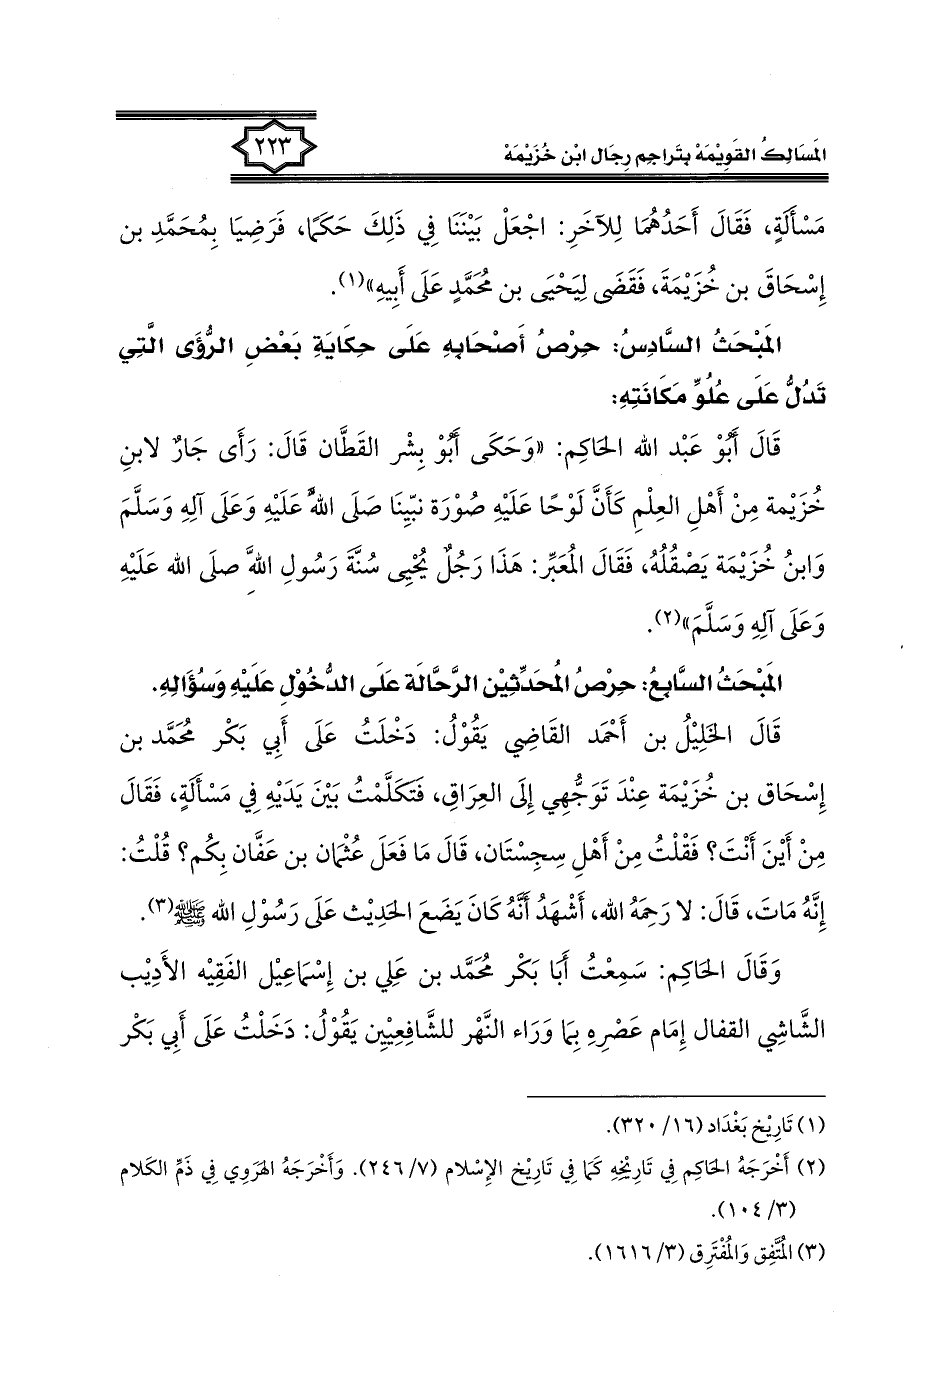 المَسَالِكُ القَوِيْمَهْ بِتَراجِم رِجَال ابْن خُزَيْمَهْ
٢٢٣
مَسْأَلَةٍ، فَقَالَ أَحَدُهُمَا لِلآخَرِ: اجْعَلْ بَيْنَنَا فِي ذَلِكَ حَكَمًا، فَرَضِيَا بِمُحَمَّدِ بن
إِسْحَاقَ بن خُزَيْمَةَ، فَقَضَى لِيَحْيَى بن مُحَمَّدٍ عَلَى أَبِيهِ»(١).
المَبْحَثُ السَّادِسُ: حِرْصُ أَصْحَابِهِ عَلَى حِكَايَةِ بَعْضِ الرُّؤَى الَّتِي
تَدُلُّ عَلَى عُلُوِّ مَكَانَتِهِ:
قَالَ أَبُوْ عَبْد الله الحَاكِم: «وَحَكَى أَبُوْ بِشْر القَطَّان قَالَ: رَأَى جَارٌ لابنِ
خُزَيْمة مِنْ أَهْلِ العِلْمِ كَأَنَّ لَوْحًا عَلَيْهِ صُوْرَة نَبِيِّنَا صَلَى اللهُ عَلَيْهِ وَعَلَى آلِهِ وَسَلَّمَ
وَابنُ خُزَيْمَة يَصْقُلُهُ، فَقَالَ المُعَبِّر: هَذَا رَجُلٌ يُحْيِى سُنَّةَ رَسُولِ اللهَّ صلَى الله عَلَيْهِ
وَعَلَى آلِهِ وَسَلَّمَ»(٢).
المَبْحَثُ السَّابِعُ: حِرْصُ المُحَدِّثِيْن الرَّحَّالَة عَلَى الدُّخُوْلِ عَلَيْهِ وَسُؤَالِهِ.
قَالَ الخَلِيْلُ بن أَحْمَد القَاضِي يَقُوْلُ: دَخْلَتُ عَلَى أَبِي بَكْر مُحَمَّد بن
إِسْحَاق بن خُزَيْمَة عِنْدَ تَوَجُّهِي إِلَى العِرَاقِ، فَتَكَلَّمْتُ بَيْنَ يَدَيْهِ فِي مَسْأَلَةٍ، فَقَالَ
مِنْ أَيْنَ أَنْتَ؟ فَقْلْتُ مِنْ أَهْلِ سِجِسْتَان، قَالَ مَا فَعَلَ عُثْمَان بن عَفَّان بِكُم؟ قُلْتُ:
إِنَّهُ مَاتَ، قَالَ: لا رَحِمَهُ الله، أَشْهَدُ أَنَّهُ كَانَ يَضَعَ الحَدِيْث عَلَى رَسُوْلِ الله ﷺ(٣).
وَقَالَ الحَاكِم: سَمِعْتُ أَبَا بَكْر مُحَمَّد بن عَلِي بن إِسْمَاعِيْل الفَقِيْه الأَدِيْب
الشَّاشِي القفال إِمَام عَصْرِهِ بِمَا وَرَاء النَّهْر للشَّافِعِيِّين يَقُوْلُ: دَخَلْتُ عَلَى أَبِي بَكْر
(١) تَارِيْخ بَغْدَاد (١٦/ ٣٢٠).
(٢) أَخْرَجَهُ الحَاكِم فِي تَارِيْخِهِ كَمَا فِي تَارِيْخ الإِسْلام (٧/ ٢٤٦). وَأَخْرَجَهُ الهَرَوِي فِي ذَمِّ الكَلام
(٣/ ١٠٤).
(٣) المُتَّفِق وَالمُفْتَرِق (٣/ ١٦١٦).